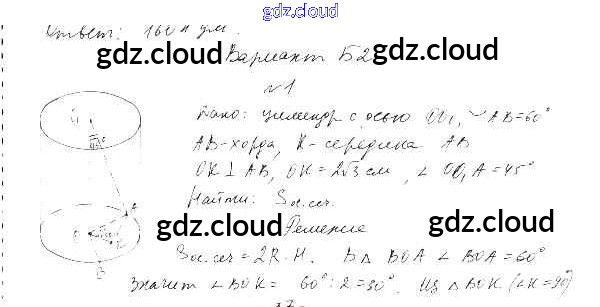 gdz.cloud
Ответ: 160π дм.
gdz.cloud Вариант Б2 gdz.cloud
№1
Дано: цилиндр с осью OO₁, ◡AB=60°
AB-хорда, K-середина AB
OK⊥AB, OK=2√3 см, ∠OO₁A=45°
Найти: Sос.сеч.
gdz.cloud Решение gdz.cloud
Sос.сеч=2R·H. В △BOA ∠BOA=60°
значит ∠BOK= 60°:2=30°. Из △BOK (∠K=90°)